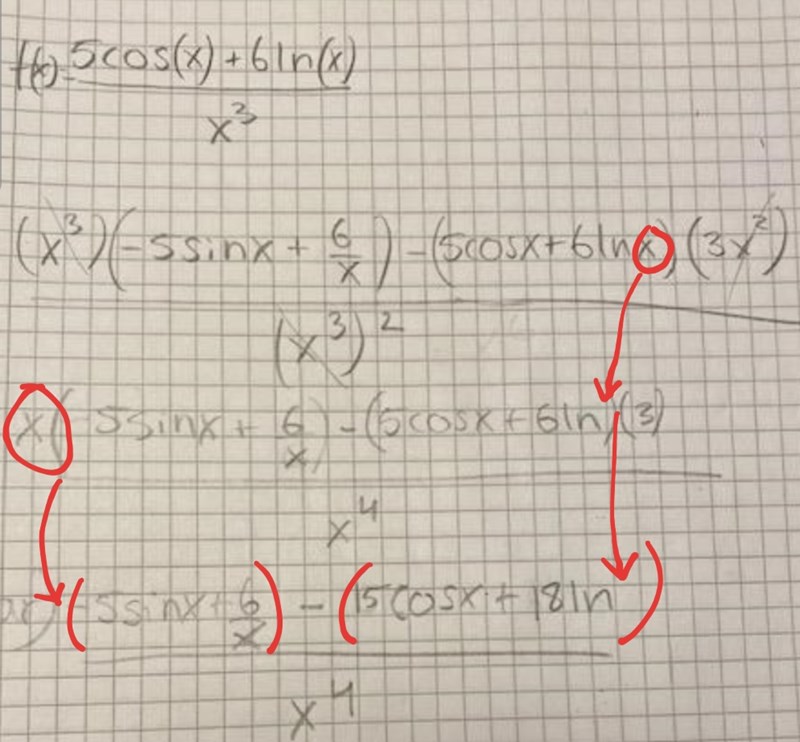 f(x) = 5cos(x) + 6ln(x)
x³
(x³)(-5sinx + 6/x) - (5cosx + 6lnx)(3x²)
(x³)²
x(-5sinx + 6/x) - (5cosx + 6ln)(3)
x⁴
(-5sinx + 6/x) - (15cosx + 18ln)
x⁴